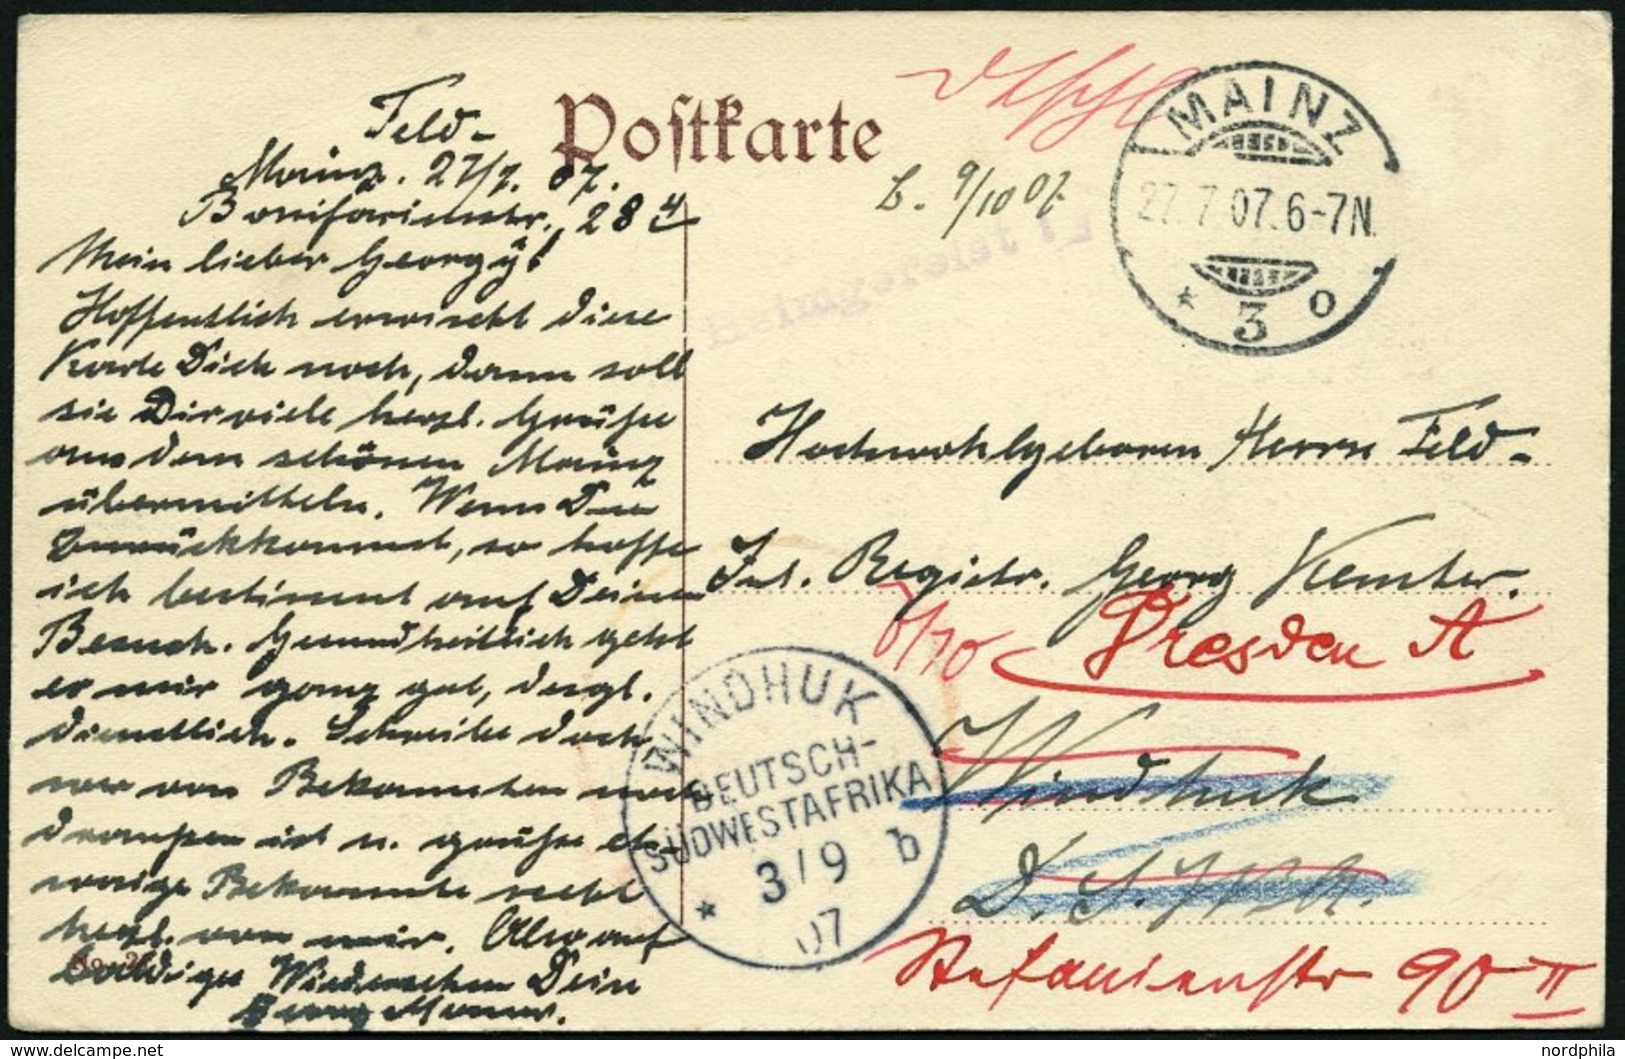 Postkarte
Feld-
Mainz. 27/7. 07.
Bonifaciusstr. 28 4
Mein lieber Georgy!
Hoffentlich erwischt diese
Karte Dich noch, dann soll
sie Dir viele herzl. Grüße
aus dem schönen Mainz
übermitteln. Wenn Du
zurückkommst, so hoffe
ich bestimmt auf Deinen
Besuch. Gesundheitlich geht
es mir ganz gut, desgl.
dienstlich. Schreibe doch
wer von Bekannten noch
draußen ist u. grüße et-
waige Bekannte recht
herzl. von mir. Also auf
baldiges Wiedersehen Dein
Georg
MAINZ
27.7.07.6-7N.
* 3 o
9/10 07.
heimgereist
Hochwohlgeboren Herrn Feld-
Int. Registr. Georg Kemter.
6/10 Dresden A
Windhuk
D. S. W. A.
Stefanienstr 90 II
WINDHUK
DEUTSCH-
SÜDWESTAFRIKA
3/9 b
* 07
nordphila
www.delcampe.net